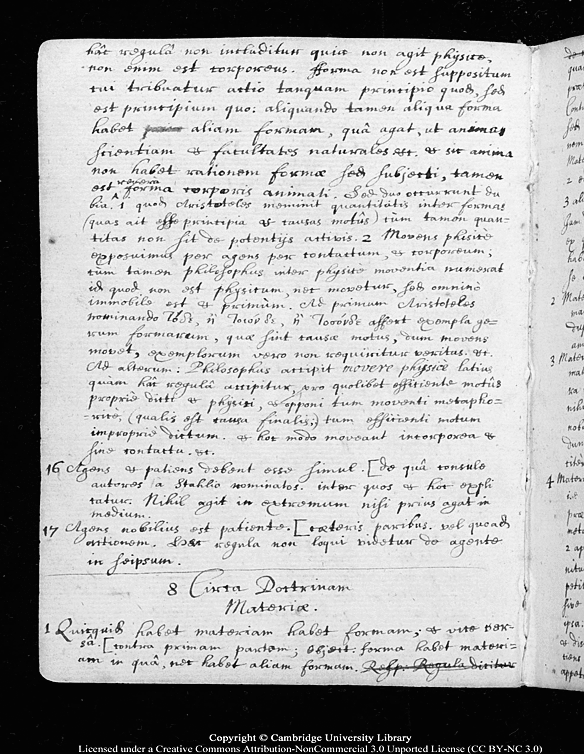 hâc regulâ non includitur quia non agit physice,
non enim est corporeus. fforma non est suppositum
cui tribuatur actio tanquam principio quod, sed
est principium quo: aliquando tamen aliqua forma
habet aliam formam, quâ agat, ut anima
scientiam & facultates naturales &c. & sic anima
non habet rationem formæ sed subjecti, tamen
est revera forma corporis animati. Sed duo occurrunt du
bia. 1 quod Aristoteles meminit quantitatis inter formas
(quas ait esse principia & causas motûs) cùm tamen quan-
titas non sit de potentijs activis. 2 Movens phisicè
exposuimus per agens per contactum, & corporeum;
cùm tamen philosophus inter physice moventia numerat
id quod non est physicum, nec movetur, sed omnino
immobile est & primùm. Ad primum Aristoteles
nominando τόδε, ἢ τοιόνδε, ἢ τοσόνδε affert exempla ge-
rum formarum, quæ sint causæ motus, dum movens
movet, exemplorum vero non requiritur veritas. &c.
Ad alterum: Philosophus accipit movere physicè latius
quam hâc regulâ accipitur, pro quolibet efficiente motûs
proprie dicti & physici, & opponi tum moventi metapho-
ricè, (qualis est causa finalis,) tum efficienti motum
improprie dictum. & hoc modo moveant incorporea &
sine contactu. &c.
16 Agens & patiens debent esse simul. [de quâ consule
autores a Stahlio nominatos. inter quos & hoc expli
catur. Nihil agit in extremum nisi prius agat in
medium.
17 Agens nobilius est patiente. [cæteris paribus. vel quoad
actionem. hæc regula non loqui videtur de agente
in seipsum.
8 Circa Doctrinam
Materiæ.
1 Quicquid habet materiam habet formam; & vice ver-
sâ. [contra primam partem; object: forma habet materi-
am in quâ, nec habet aliam formam. Resp: Regula dicitur
Copyright © Cambridge University Library
Licensed under a Creative Commons Attribution-NonCommercial 3.0 Unported License (CC BY-NC 3.0)